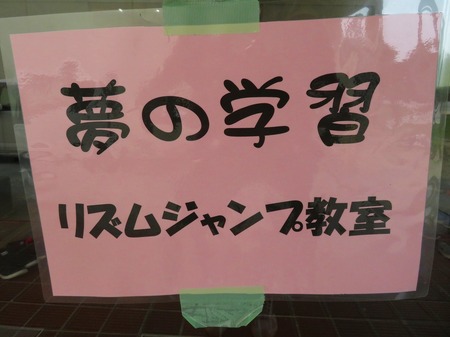 夢の学習
リズムジャンプ教室